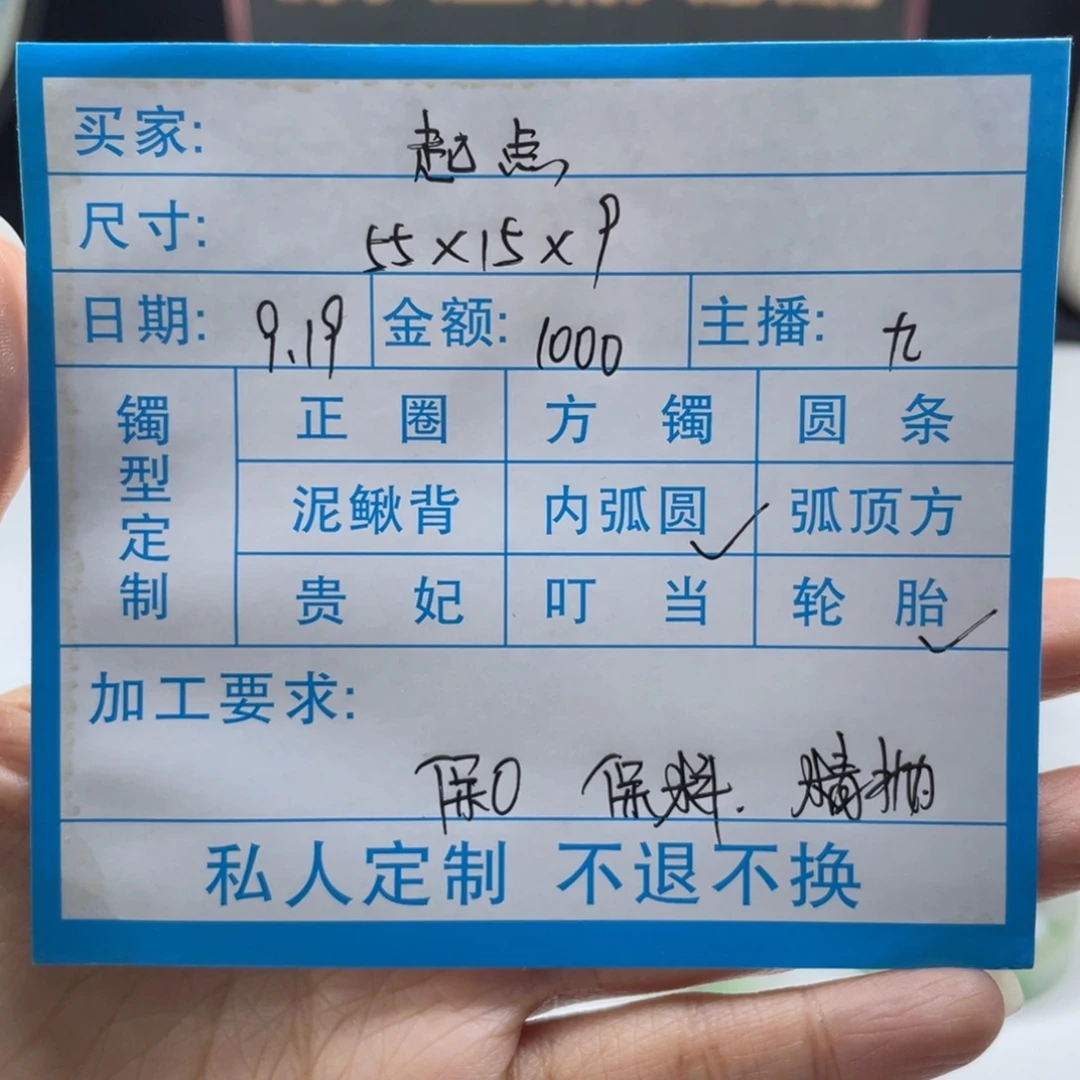 买家: 起点
尺寸: 55×15×9
日期: 9.19 金额: 1000 主播: 九
镯型定制
正圈 方镯 圆条
泥鳅背 内弧圆✓ 弧顶方
贵妃 叮当 轮胎✓
加工要求:
保0 保料. 精抛
私人定制 不退不换